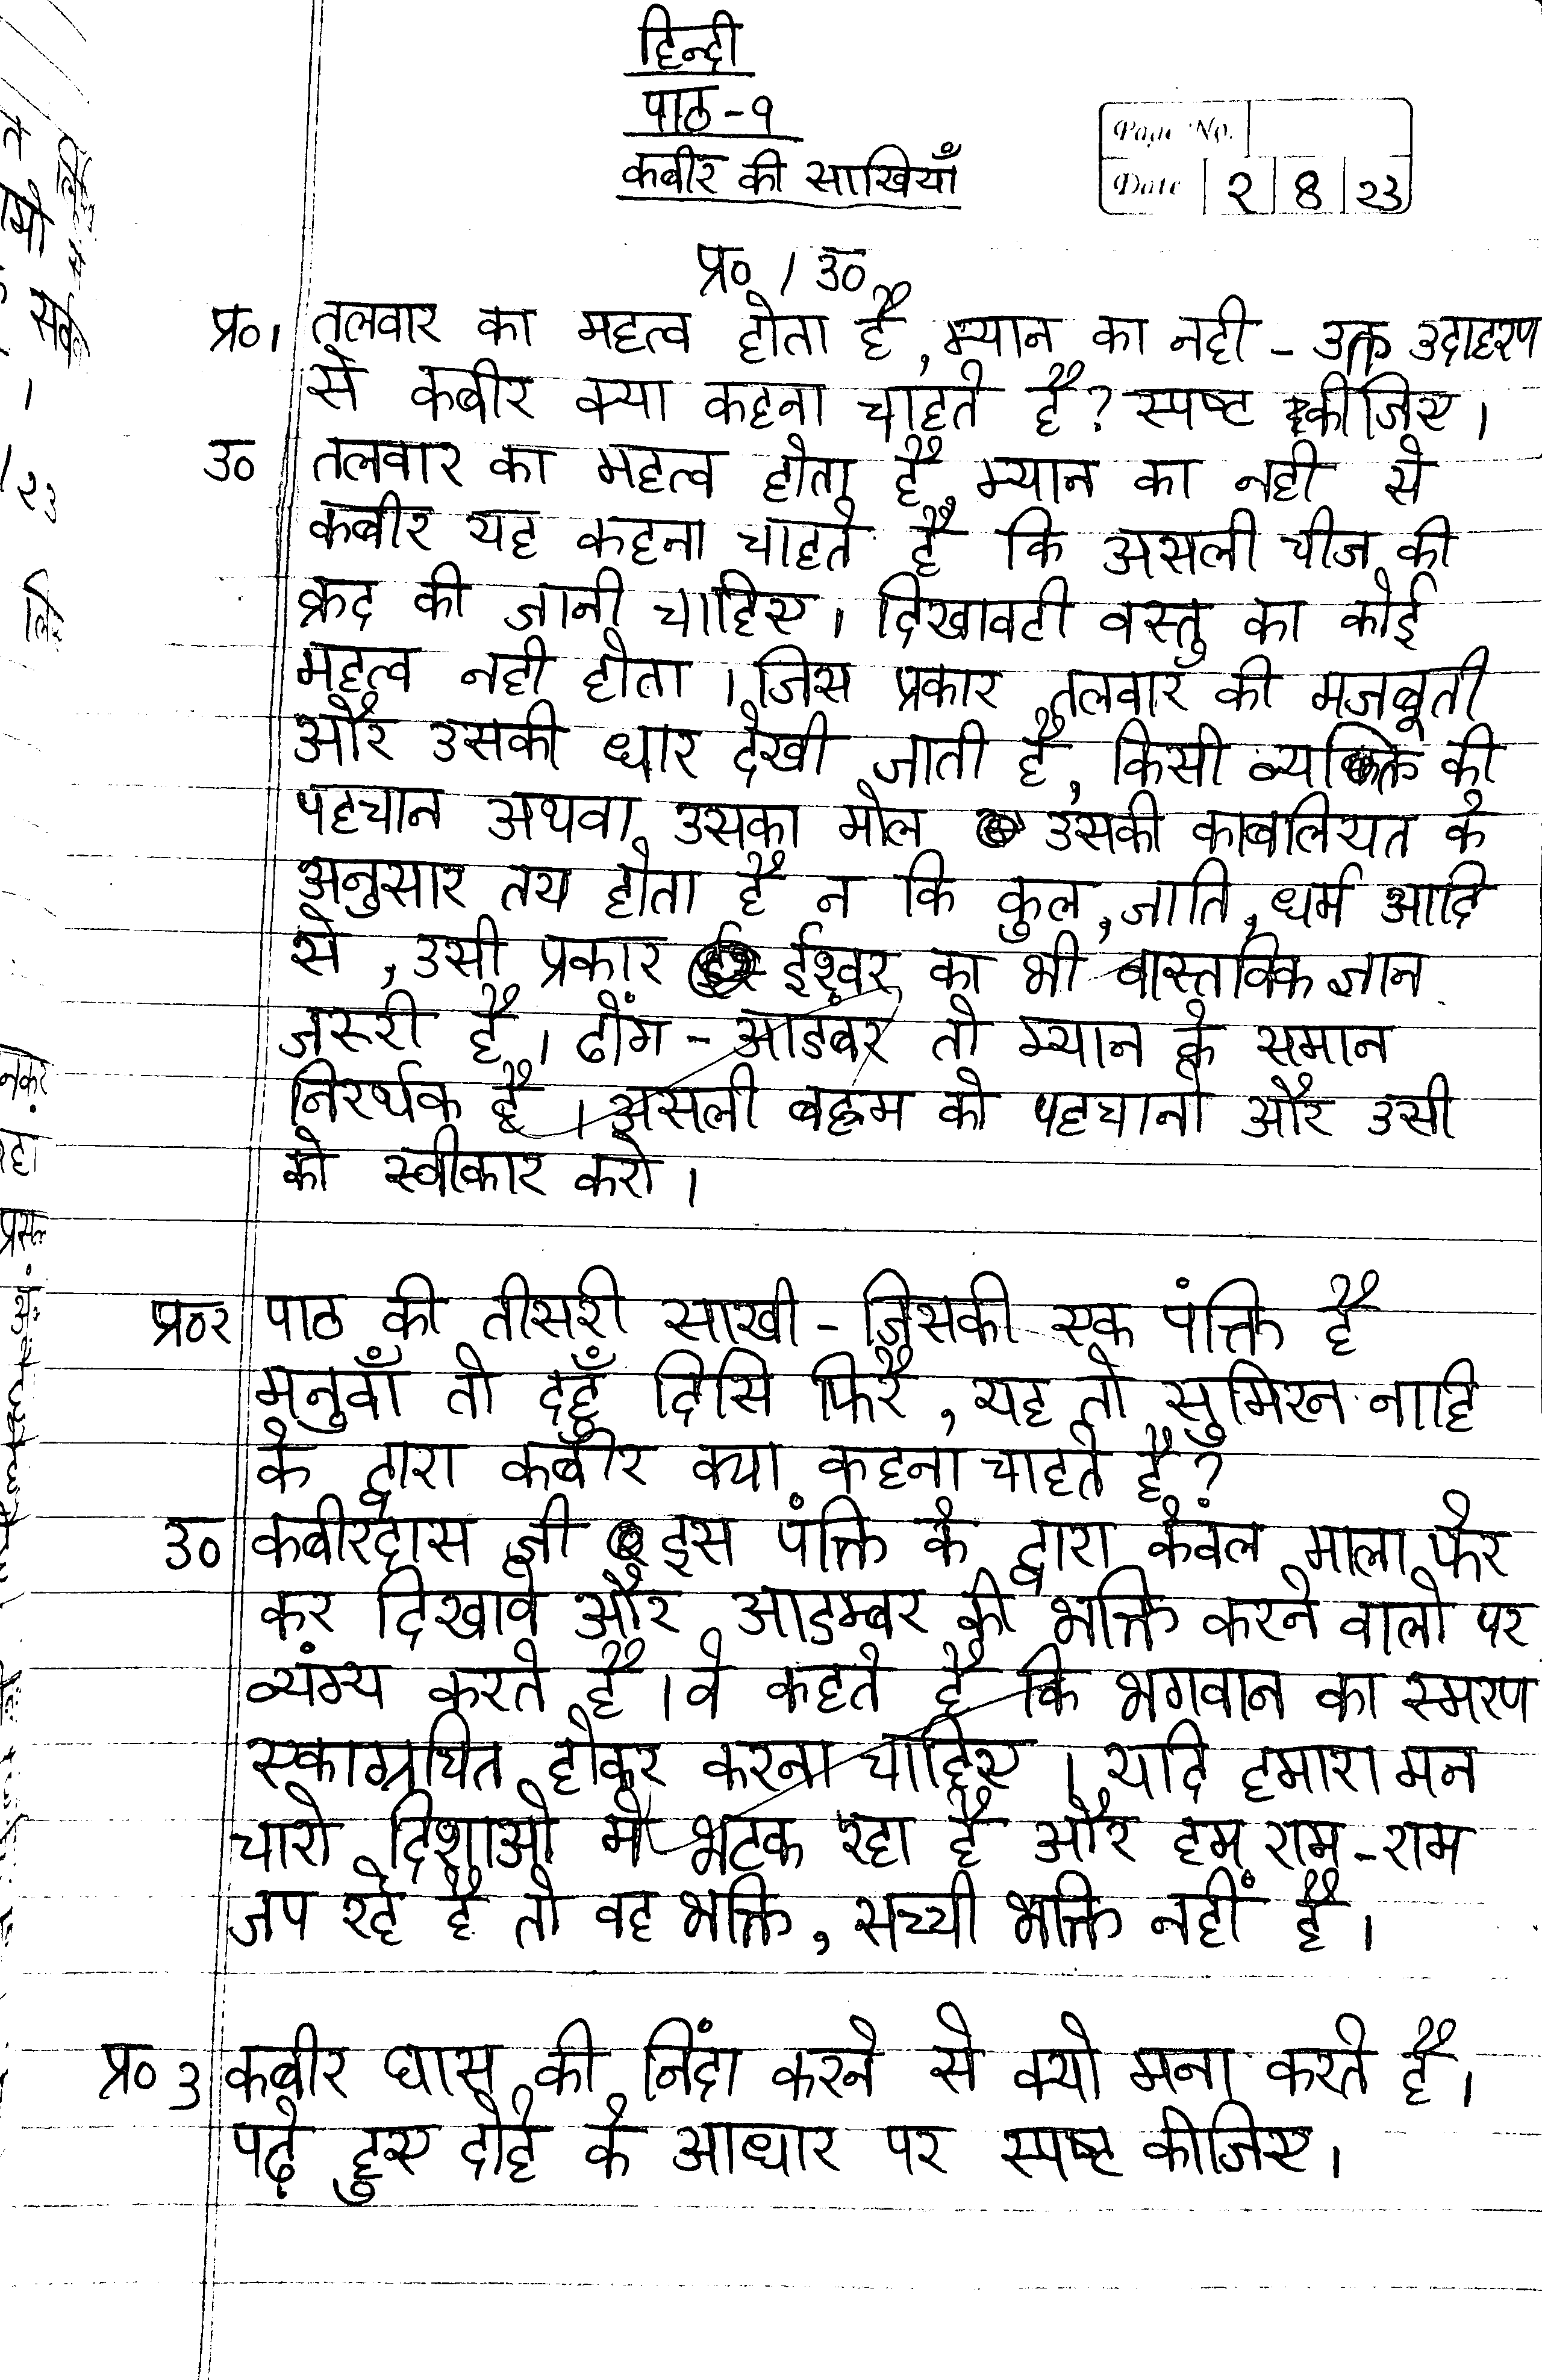 हिन्दी
पाठ-१
कबीर की साखियाँ
Page No.
Date २ 8 २३
प्र० / उ०
प्र०। तलवार का महत्व होता है, म्यान का नही - उक्त उदाहरण
से कबीर क्या कहना चाहते है? स्पष्ट कीजिए।
उ० तलवार का महत्व होता है, म्यान का नही से
कबीर यह कहना चाहते है कि असली चीज की
क्रद की जानी चाहिए। दिखावटी वस्तु का कोई
महत्व नही होता । जिस प्रकार तलवार की मजबूती
और उसकी धार देखी जाती है, किसी व्यक्ति की
पहचान अथवा उसका मोल उसकी काबलियत के
अनुसार तय होता है न कि कुल, जाति, धर्म आदि
से, उसी प्रकार ईश्वर का भी वास्तविक ज्ञान
जरूरी है। ढोंग - आडंबर तो म्यान के समान
निरर्थक है । असली बह्रम को पहचानो और उसी
को स्वीकार करो ।
प्र०२ पाठ की तीसरी साखी - जिसकी एक पंक्ति है
मनुवाँ तो दहुँ दिसि फिरै, यह तो सुमिरन नाहि
के द्वारा कबीर क्या कहना चाहते है?
उ० कबीरदास जी इस पंक्ति के द्वारा केवल माला फेर
कर दिखावे और आडम्बर की भक्ति करने वालो पर
व्यंग्य करते है । वे कहते है कि भगवान का स्मरण
एकाग्रचित होकर करना चाहिए । यदि हमारा मन
चारो दिशाओ मे भटक रहा है और हम राम-राम
जप रहे है तो वह भक्ति, सच्ची भक्ति नहीं है ।
प्र० 3 कबीर घास की निंदा करने से क्यो मना करते है ।
पढ़े हुए दोहे के आधार पर स्पष्ट कीजिए ।